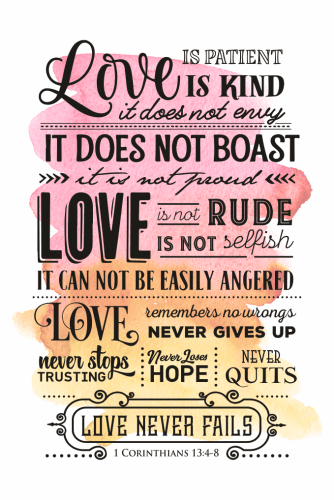 Love IS PATIENT
IS KIND
it does not envy
IT DOES NOT BOAST
it is not proud
LOVE is not RUDE
IS NOT selfish
IT CAN NOT BE EASILY ANGERED
LOVE remembers no wrongs
NEVER GIVES UP
never stops
TRUSTING
Never Loses
HOPE
NEVER
QUITS
LOVE NEVER FAILS
1 CORINTHIANS 13:4-8